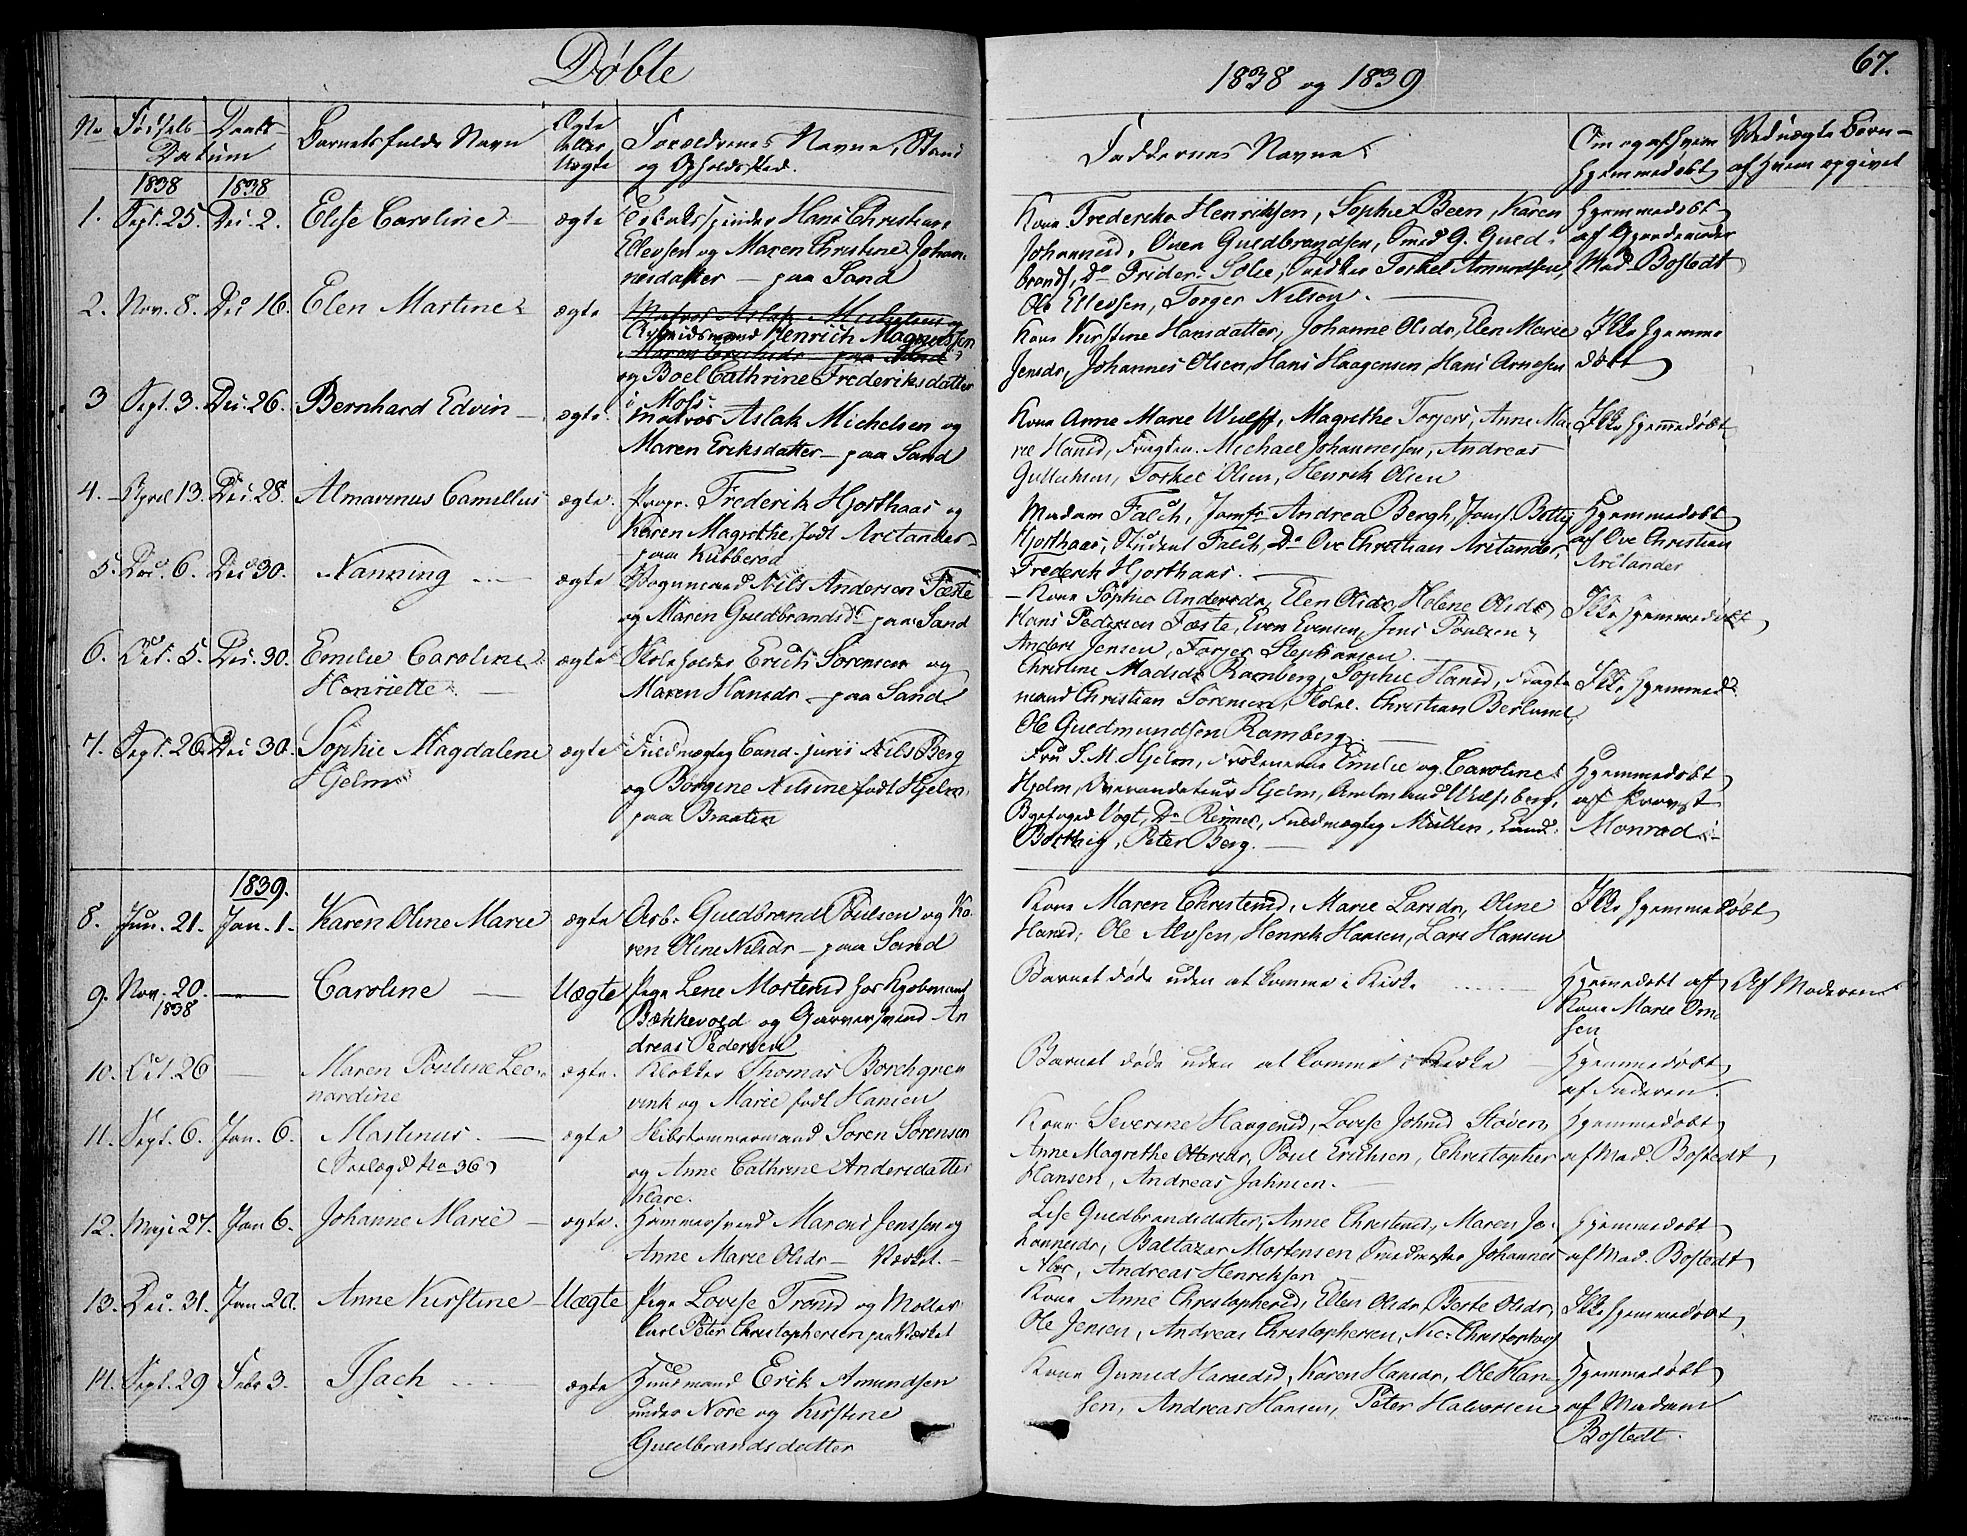 Døbte
1838 og 1839
67.
No
Fødsels- Daabs-
Datum
Barnets fulde Navn
Ægte
eller
Uægte
Forældrenes Navne, Stand
og Opholdsted.
Faddernes Navne.
Om og af hvem
hjemmedøbt
Ved uægte Børn -
af hvem opgivet
1838 1838
1. Sept. 25. Dec. 2. Elise Caroline ægte Tobaksspinder Hans Christian
Ellevsen og Maren Christine Johan-
nesdatter - paa Sand
Kone Frederika Henriksen, Sophie Been, Karen
Johannesd. Guldbrandsen, Smed G. Guld-
brands, Do Frider. Torkel Amundsen,
Ole Ellevsen, Torger Nilsen.
Hjemmedøbt
af Gjordemoder
Mad. Bostedt
2. Nov. 8. Dec 16. Elen Martine ægte Matros Aslak Michelsen og
Arbeidsmand Henrich Magnussen
Maren Eriksdr. - paa Sand
og Boel Cathrine Frederiksdatter
i Moss.
Kone Kirstine Hansdatter, Johanne Olsdr, Elen Marie
Jensdr, Johannes Olsen, Hans Haagensen, Hans Arnesen
Ikke hjemme
døbt
3 Sept. 3. Dec. 26. Bernhard Edvin ægte. Matros Aslak Michelsen og
Maren Eriksdatter - paa Sand
Kone Anne Marie Wulff, Magrethe Torjers, Anne Ma-
rie Hansd, Fragtm. Michael Johannessen, Andreas
Gulliksen, Torkel Olsen, Henrik Olsen
Ikke hjemmedøbt
4. April 13. Dec. 28. Almarinus Camillus ægte. Propr. Frederik Hjorthaas og
Karen Magrethe født Arctander
paa Kubberød
Madam Falch, Jomfr Andrea Bergh, Jomf. Betty
Hjorthaas, Student Falch, Do Ove Christian Arctander,
Frederik Hjorthaas.
Hjemmedøbt
af Ove Christian
Arctander
5. Dec. 6. Dec 30. Nanning ægte Vognmand Nils Andersen Fæste
og Maren Guldbrandsdr paa Sand
- Kone Sophie Andersdr, Elen Olsdr, Helene Olsdr
Hans Pedersen Fæste, Even Evensen, Jens Poulsen,
Anders Jensen, Torjer Stephansen.
Ikke hjemmedøbt
6. Oct. 5. Dec. 30. Emilie Caroline
Henriette
ægte Skoleholder Erich Sørensen og
Maren Hansdr - paa Sand
Christine Madsdr Ramberg, Sophie Hansd, Fragt-
mand Christian Sørensen, Skolel. Christian Berlund,
Ole Guldmundsen Ramberg.
Ikke hjemmed.
7. Sept. 26. Dec 30. Sophie Magdalene
Hjelm
ægte Fuldmægtig Cand. juris Nils Berg
og Børgine Nilsine født Hjelm,
paa Braaten
Fru S. M. Hjelm, Frøkenerne Emilie og Caroline
Hjelm, Overauditeur Hjelm, Amtmand Wulfsberg,
Byefoged Vogt, Do Rennel, Fuldmægtig Mülten, Cand.
Botthig, Peter Berg.
Hjemmedøbt
af Provst
Monrad
1839.
8. Jun. 21. Jan. 1. Karen Oline Marie ægte Arb. Guldbrand Poulsen og Ka-
ren Oline Nilsdr - paa Sand
Kone Maren Christensd, Marie Larsdr, Oline
Hansd, Ole Alvsen, Henrik Hansen, Lars Hansen
Ikke hjemmedøbt
9. Nov. 20.
1838
Caroline Uægte Pige Lene Mortensd hos Kjøbmand
Bækkevold og Garversvend An
dreas Pedersen
Barnet døde uden at komme i Kirke
Hjemmedøbt af
Kone Marie Om-
sen
Af Moderen
10. Oct. 26 Maren Pouline Leo-
nardine
ægte. Klokker Thomas Borchgre
vink og Marie født Hansen
Barnet døde uden at komme i Kirke
Hjemmedøbt
af Faderen.
11. Sept. 6. Jan. 6. Martinus.
(Forlagd No 36)
ægte Skibstømmermand Søren Sørensen
og Anne Cathrine Andersdatter
Klare.
Kone Severine Haagensd, Lovise Johnsd Støvern
Anne Magrethe Ottersdr, Poul Erichsen, Christopher
Hansen, Andreas Jahnsen.
Hjemmedøbt
af Mad. Bostedt
12. Maji 27. Jan 6. Johanne Marie ægte. Hammersvend Marcus Jenssen og
Anne Marie Olsdr - Værket.
Lise Guldbrandsdatter, Anne Christensd, Maren Jo-
hannesdr, Baltazar Mortensen Smedmester Johannes
Alvs, Andreas Henriksen
Hjemmedøbt
af Mad. Bostedt
13. Dec. 31. Jan. 20. Anne Kirstine Uægte Pige Lovise Tronsd og Møller
Carl Peter Christophersen paa Værket
Kone Anne Christophersd, Ellen Olsdr, Berte Olsdr,
Ole Jensen, Andreas Christophersen, Nic. Christophers
Ikke hjemmedøbt
14. Sept. 29 Febr 3. Isach ægte Huusmand Erik Amundsen
under Nore og Kirstine
Guldbrandsdatter
Kone Gunild Haraldsd, Karen Hansdr, Ole Han-
sen, Andreas Hansen, Peter Halvorsen
Hjemmedøbt
af Madam
Bostedt.